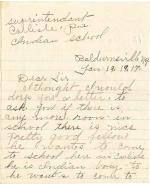 superintendent
Carlisle, Pa
Indian School
Baldwinsville, Ny
Jan, 19, 1917
Dear Sir
I thought I would
drop you a letter to
ask you if there is
any more room in
school there is nice
pretty good sized
he wants to come
to school here
he is Indian boy
he wants to come to